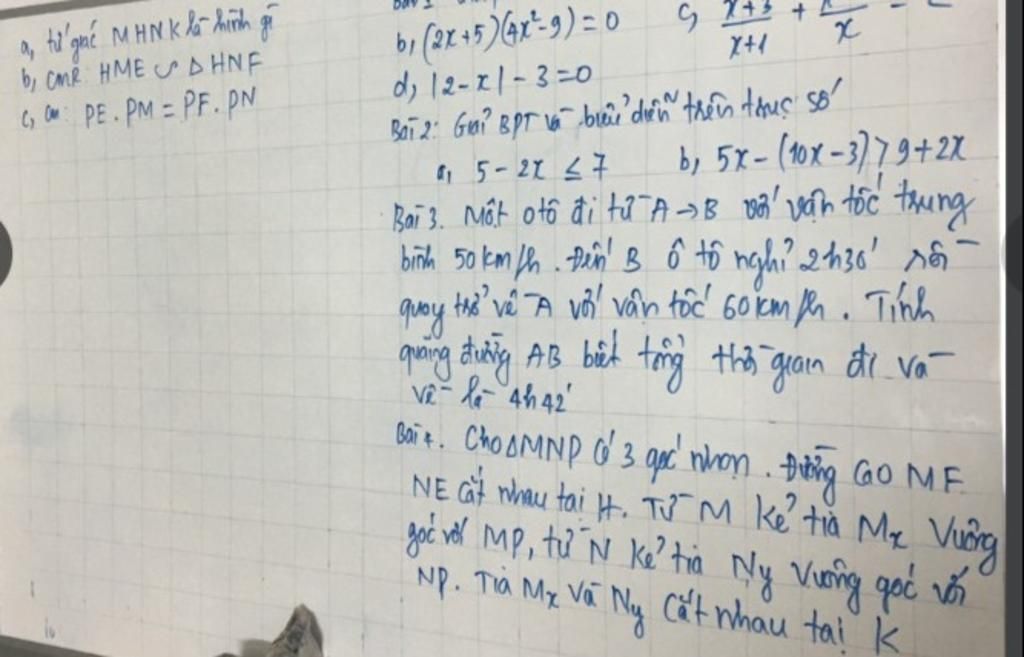 a, tứ giác MHNK là hình gì
b, CMR: HME ∽ Δ HNF
c, cm: PE.PM = PF.PN
b, (2x+5)(4x²-9)=0
c, x+3/x+1 + /x
d, |2-x|-3=0
Bài 2: Giải BPT và biểu diễn trên trục số
a, 5-2x ≤ 7 b, 5x-(10x-3)>9+2x
Bài 3. Một ôtô đi từ A→B với vận tốc trung
bình 50km/h. Đến B ô tô nghỉ 2h30' rồi
quay trở về A với vận tốc 60km/h. Tính
quãng đường AB biết tổng thời gian đi và
về là 4h42'
Bài 4. Cho ΔMNP có 3 góc nhọn. Đường cao MF
NE cắt nhau tại H. Từ M kẻ tia Mx vuông
góc với MP, từ N kẻ tia Ny vuông góc với
NP. Tia Mx và Ny cắt nhau tại K